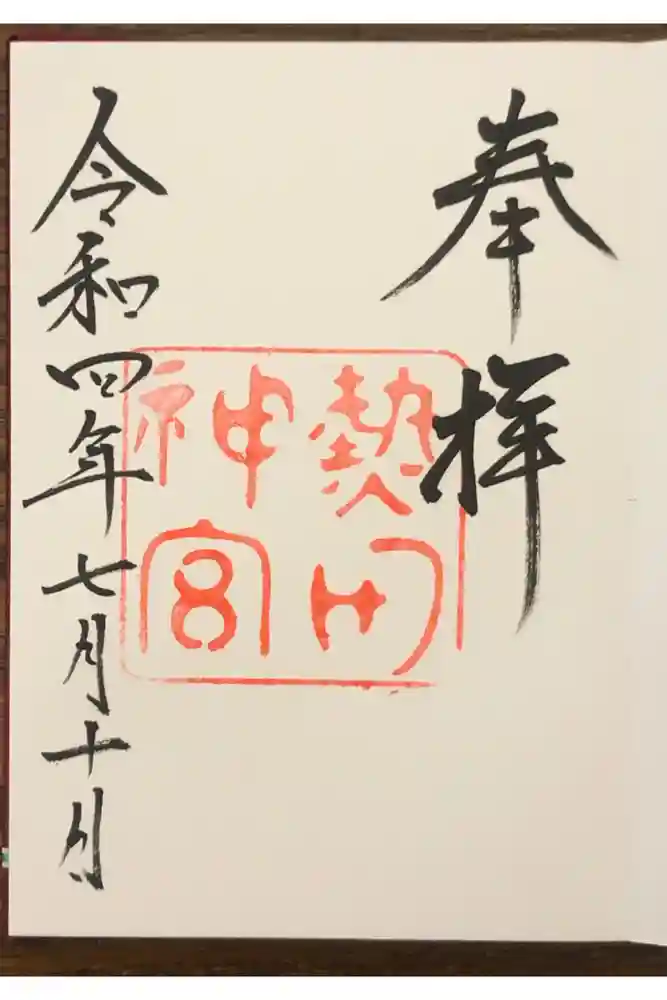 奉拝
熱田
神宮
令和四年七月十日